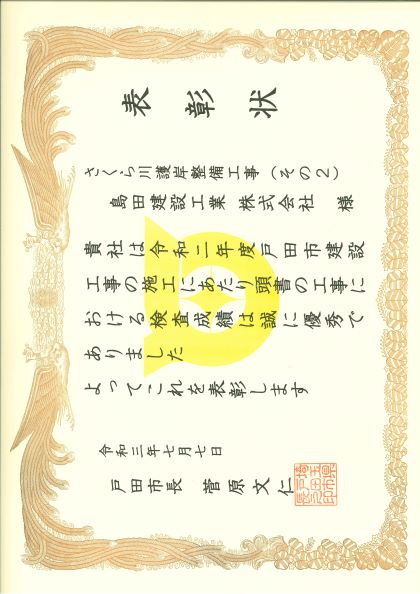 表彰状
さくら川護岸整備工事（その２）
島田建設工業 株式会社 様
貴社は令和二年度戸田市建設
工事の施工にあたり頭書の工事に
おける検査成績は誠に優秀で
ありました
よってこれを表彰します
令和三年七月七日
戸田市長 菅原文仁
埼玉県戸田市長之印